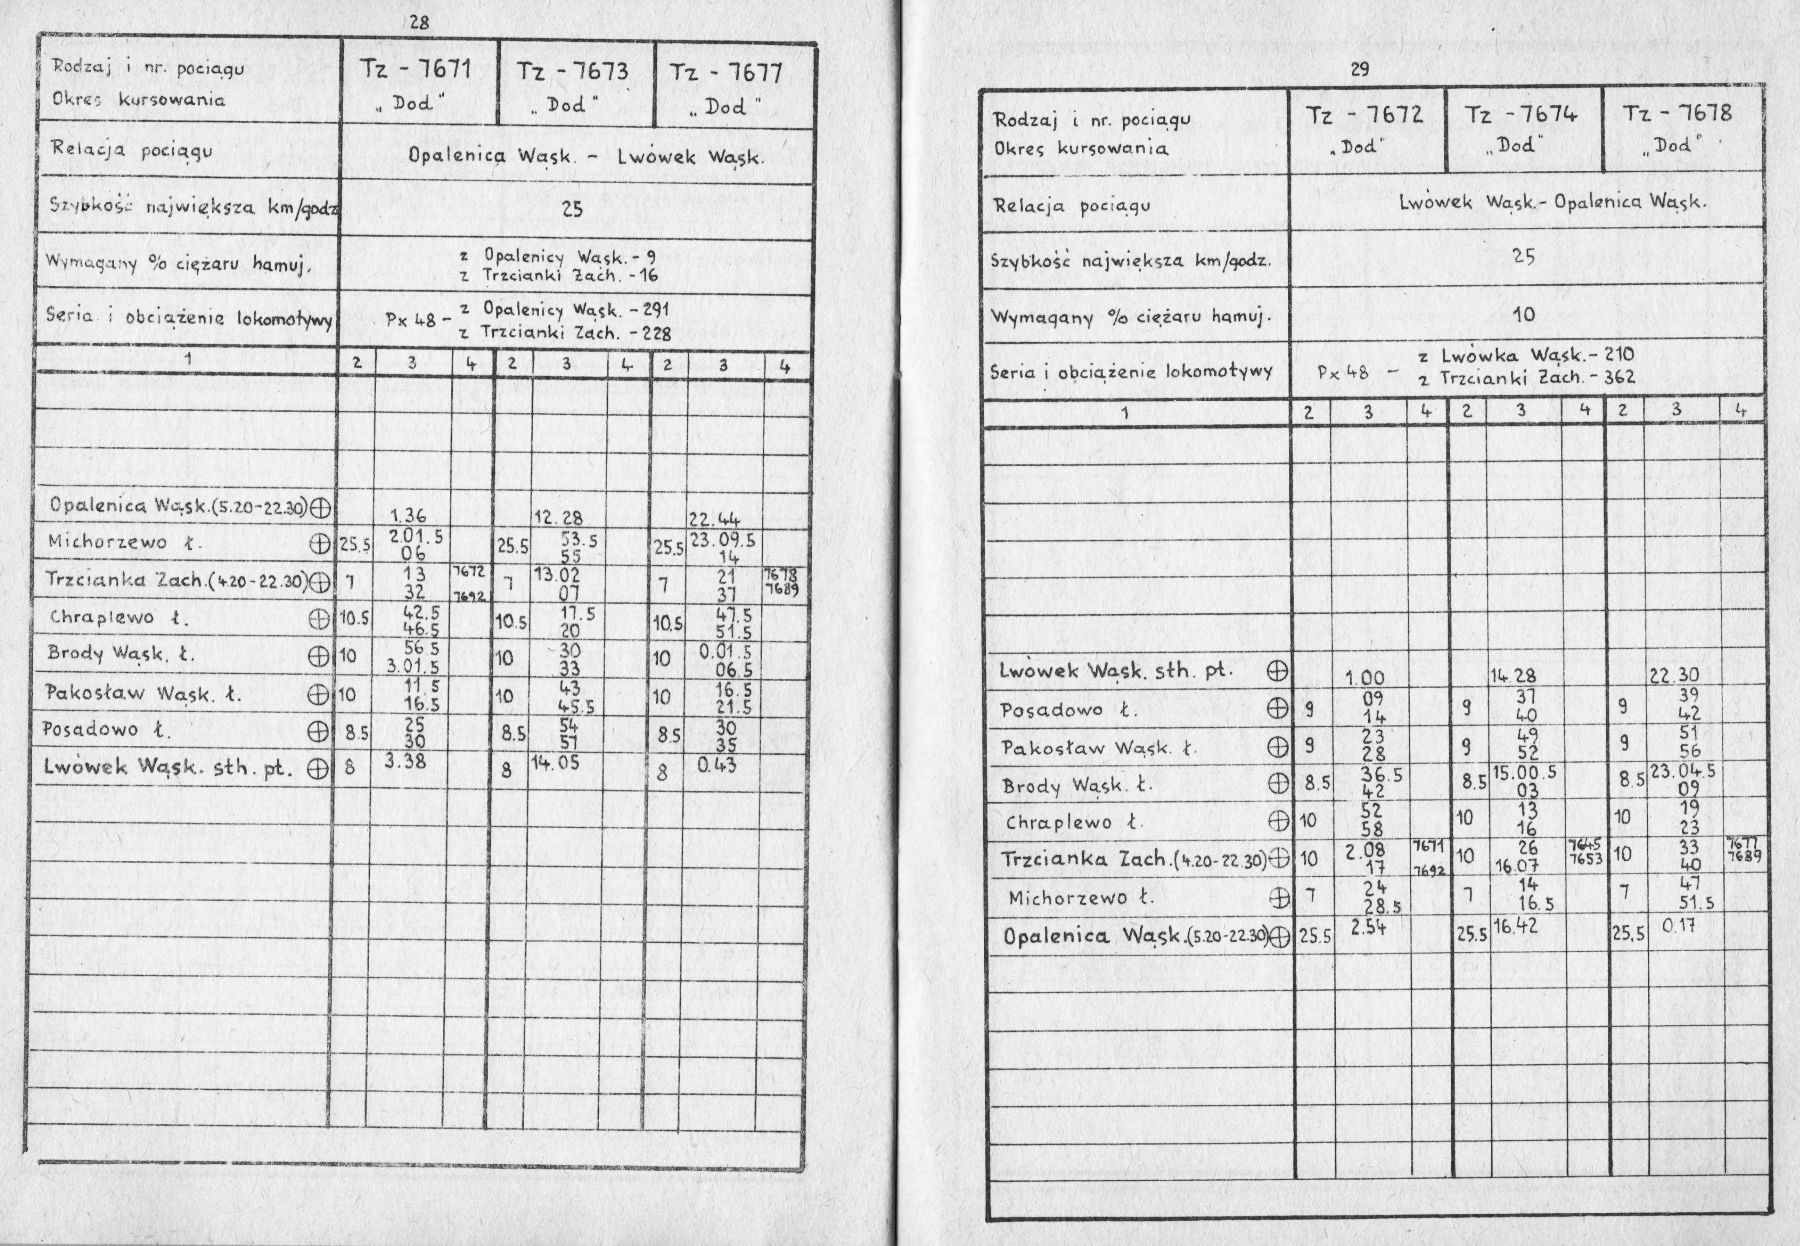 28
Rodzaj i nr. pociągu Tz - 7671 Tz - 7673 Tz - 7677
Okres kursowania „Dod" „Dod" „Dod"
Relacja pociągu Opalenica Wąsk. - Lwówek Wąsk.
Szybkość największa km/godz 25
Wymagany % ciężaru hamuj. z Opalenicy Wąsk. - 9
z Trzcianki Zach. - 16
Seria i obciążenie lokomotywy Px 48 - z Opalenicy Wąsk. - 291
z Trzcianki Zach. - 228
1 2 3 4 2 3 4 2 3 4
Opalenica Wąsk.(5.20-22.30) ⊕ 1.36 12.28 22.44
Michorzewo ł. ⊕ 25.5 2.01.5 25.5 53.5 25.5 23.09.5
06 55 14
Trzcianka Zach.(4.20-22.30) ⊕ 7 13 7672 7 13.02 7 21 7678
32 7692 07 37 7689
Chraplewo ł. ⊕ 10.5 42.5 10.5 17.5 10.5 47.5
46.5 20 51.5
Brody Wąsk. ł. ⊕ 10 56.5 10 30 10 0.01.5
3.01.5 33 06.5
Pakosław Wąsk. ł. ⊕ 10 11.5 10 43 10 16.5
16.5 45.5 21.5
Posadowo ł. ⊕ 8.5 25 8.5 54 8.5 30
30 57 35
Lwówek Wąsk. sth. pt. ⊕ 8 3.38 8 14.05 8 0.43
29
Rodzaj i nr. pociągu Tz - 7672 Tz - 7674 Tz - 7678
Okres kursowania „Dod" „Dod" „Dod"
Relacja pociągu Lwówek Wąsk.- Opalenica Wąsk.
Szybkość największa km/godz. 25
Wymagany % ciężaru hamuj. 10
Seria i obciążenie lokomotywy Px 48 - z Lwówka Wąsk. - 210
z Trzcianki Zach. - 362
1 2 3 4 2 3 4 2 3 4
Lwówek Wąsk. sth. pt. ⊕ 1.00 14.28 22.30
Posadowo ł. ⊕ 9 09 9 37 9 39
14 40 42
Pakosław Wąsk. ł. ⊕ 9 23 9 49 9 51
28 52 56
Brody Wąsk. ł. ⊕ 8.5 36.5 8.5 15.00.5 8.5 23.04.5
42 03 09
Chraplewo ł. ⊕ 10 52 10 13 10 19
58 16 23
Trzcianka Zach.(4.20-22.30) ⊕ 10 2.08 7671 10 26 7645 10 33 7677
17 7692 16.07 7653 40 7689
Michorzewo ł. ⊕ 7 24 7 14 7 47
28.5 16.5 51.5
Opalenica Wąsk.(5.20-22.30) ⊕ 25.5 2.54 25.5 16.42 25.5 0.17